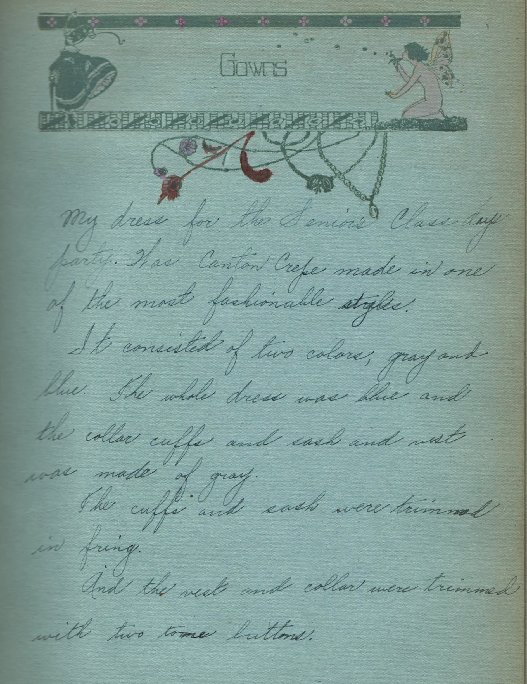 Gowns
My dress for the Seniors Class-day
party. Was Canton Crepe made in one
of the most fashionable styles.
It consisted of two colors, gray and
blue. The whole dress was blue and
the collar cuffs and sash and vest
was made of gray.
The cuffs and sash were trimmed
in fring.
And the vest and collar were trimmed
with two tone buttons.